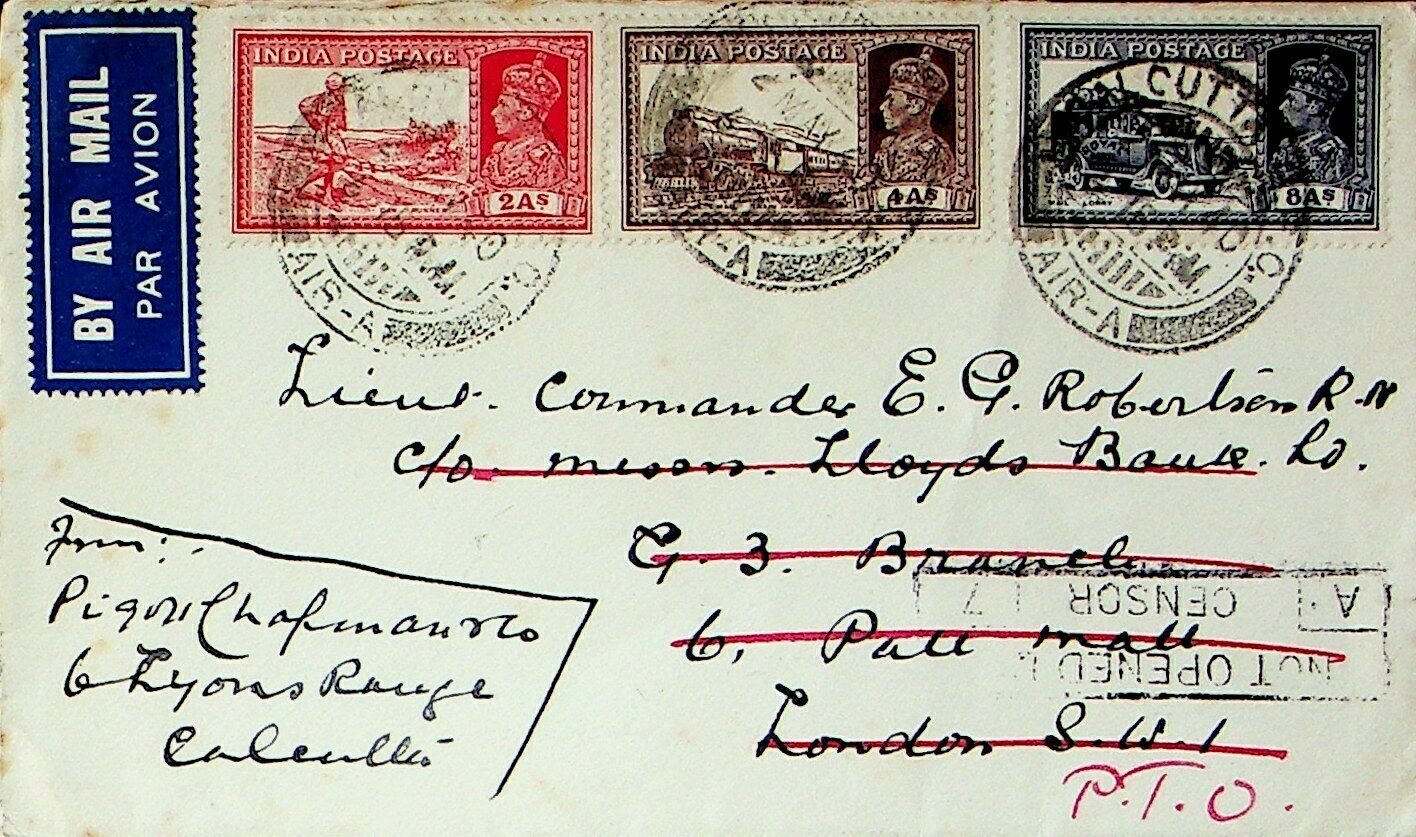 BY AIR MAIL
PAR AVION
INDIA POSTAGE
2As
INDIA POSTAGE
4As
INDIA POSTAGE
8As
AIR-A
R-A
CUTT
G.P.O.
AIR-A
Lieut. Commander E. G. Robertson R.N
c/o. Messrs. Lloyds Bank. Ld.
G. 3. Branch
6, Pall Mall
London S.W.1
P.T.O.
From:
Pigott Chapman & Co
6 Lyons Range
Calcutta
NOT OPENED
A. CENSOR 7